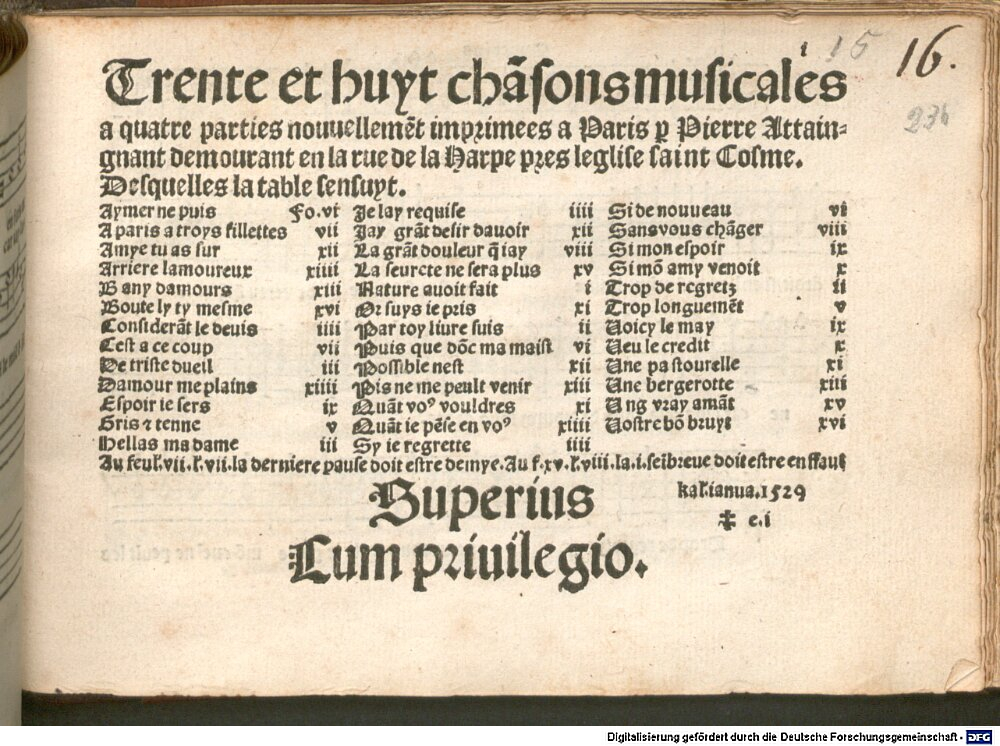 i 15 16.
Trente et huyt chãsons musicales
234
a quatre parties nouuellemẽt imprimees a Paris ꝑ Pierre Attain-
gnant demourant en la rue de la Harpe pres leglise saint Cosme.
Desquelles la table sensuyt.
Aymer ne puis fo.vi Je lay requise iiii Si de nouueau vi
A paris a troys fillettes vii Jay grãt desir dauoir xii Sans vous chãger viii
Amye tu as sur xii La grãt douleur q̃ iay viii Si mon espoir ix
Arriere lamoureux xiiii La seurete ne sera plus xv Si mõ amy venoit x
B any damours xiii Nature auoit fait i Trop de regretz ii
Boute ly ty mesme xvi Or suys ie pris xi Trop longuemẽt v
Considerãt le deuis iiii Par toy liure suis ii Voicy le may ix
Cest a ce coup vii Puis que dõc ma maist vi Veu le credit x
De triste dueil iii Possible nest xii Une pastourelle xi
Damour me plains xiiii Pis ne me peult venir xiii Une bergerotte xiii
Espoir ie sers ix Quãt voꝰ vouldres xi Ung vray amãt xv
Gris ⁊ tenne v Quãt ie pẽse en voꝰ xiiii Vostre bõ bruyt xvi
Hellas madame iii Sy ie regrette iiii
Au feul.vii.l.vii.la derniere pause doit estre demye.Au f.xv.l.viii.la.i.seĩbreue doit estre en ffaut
Superius
kal.ianua.1529
‡ e.i
Cum priuilegio.
Digitalisierung gefördert durch die Deutsche Forschungsgemeinschaft - DFG